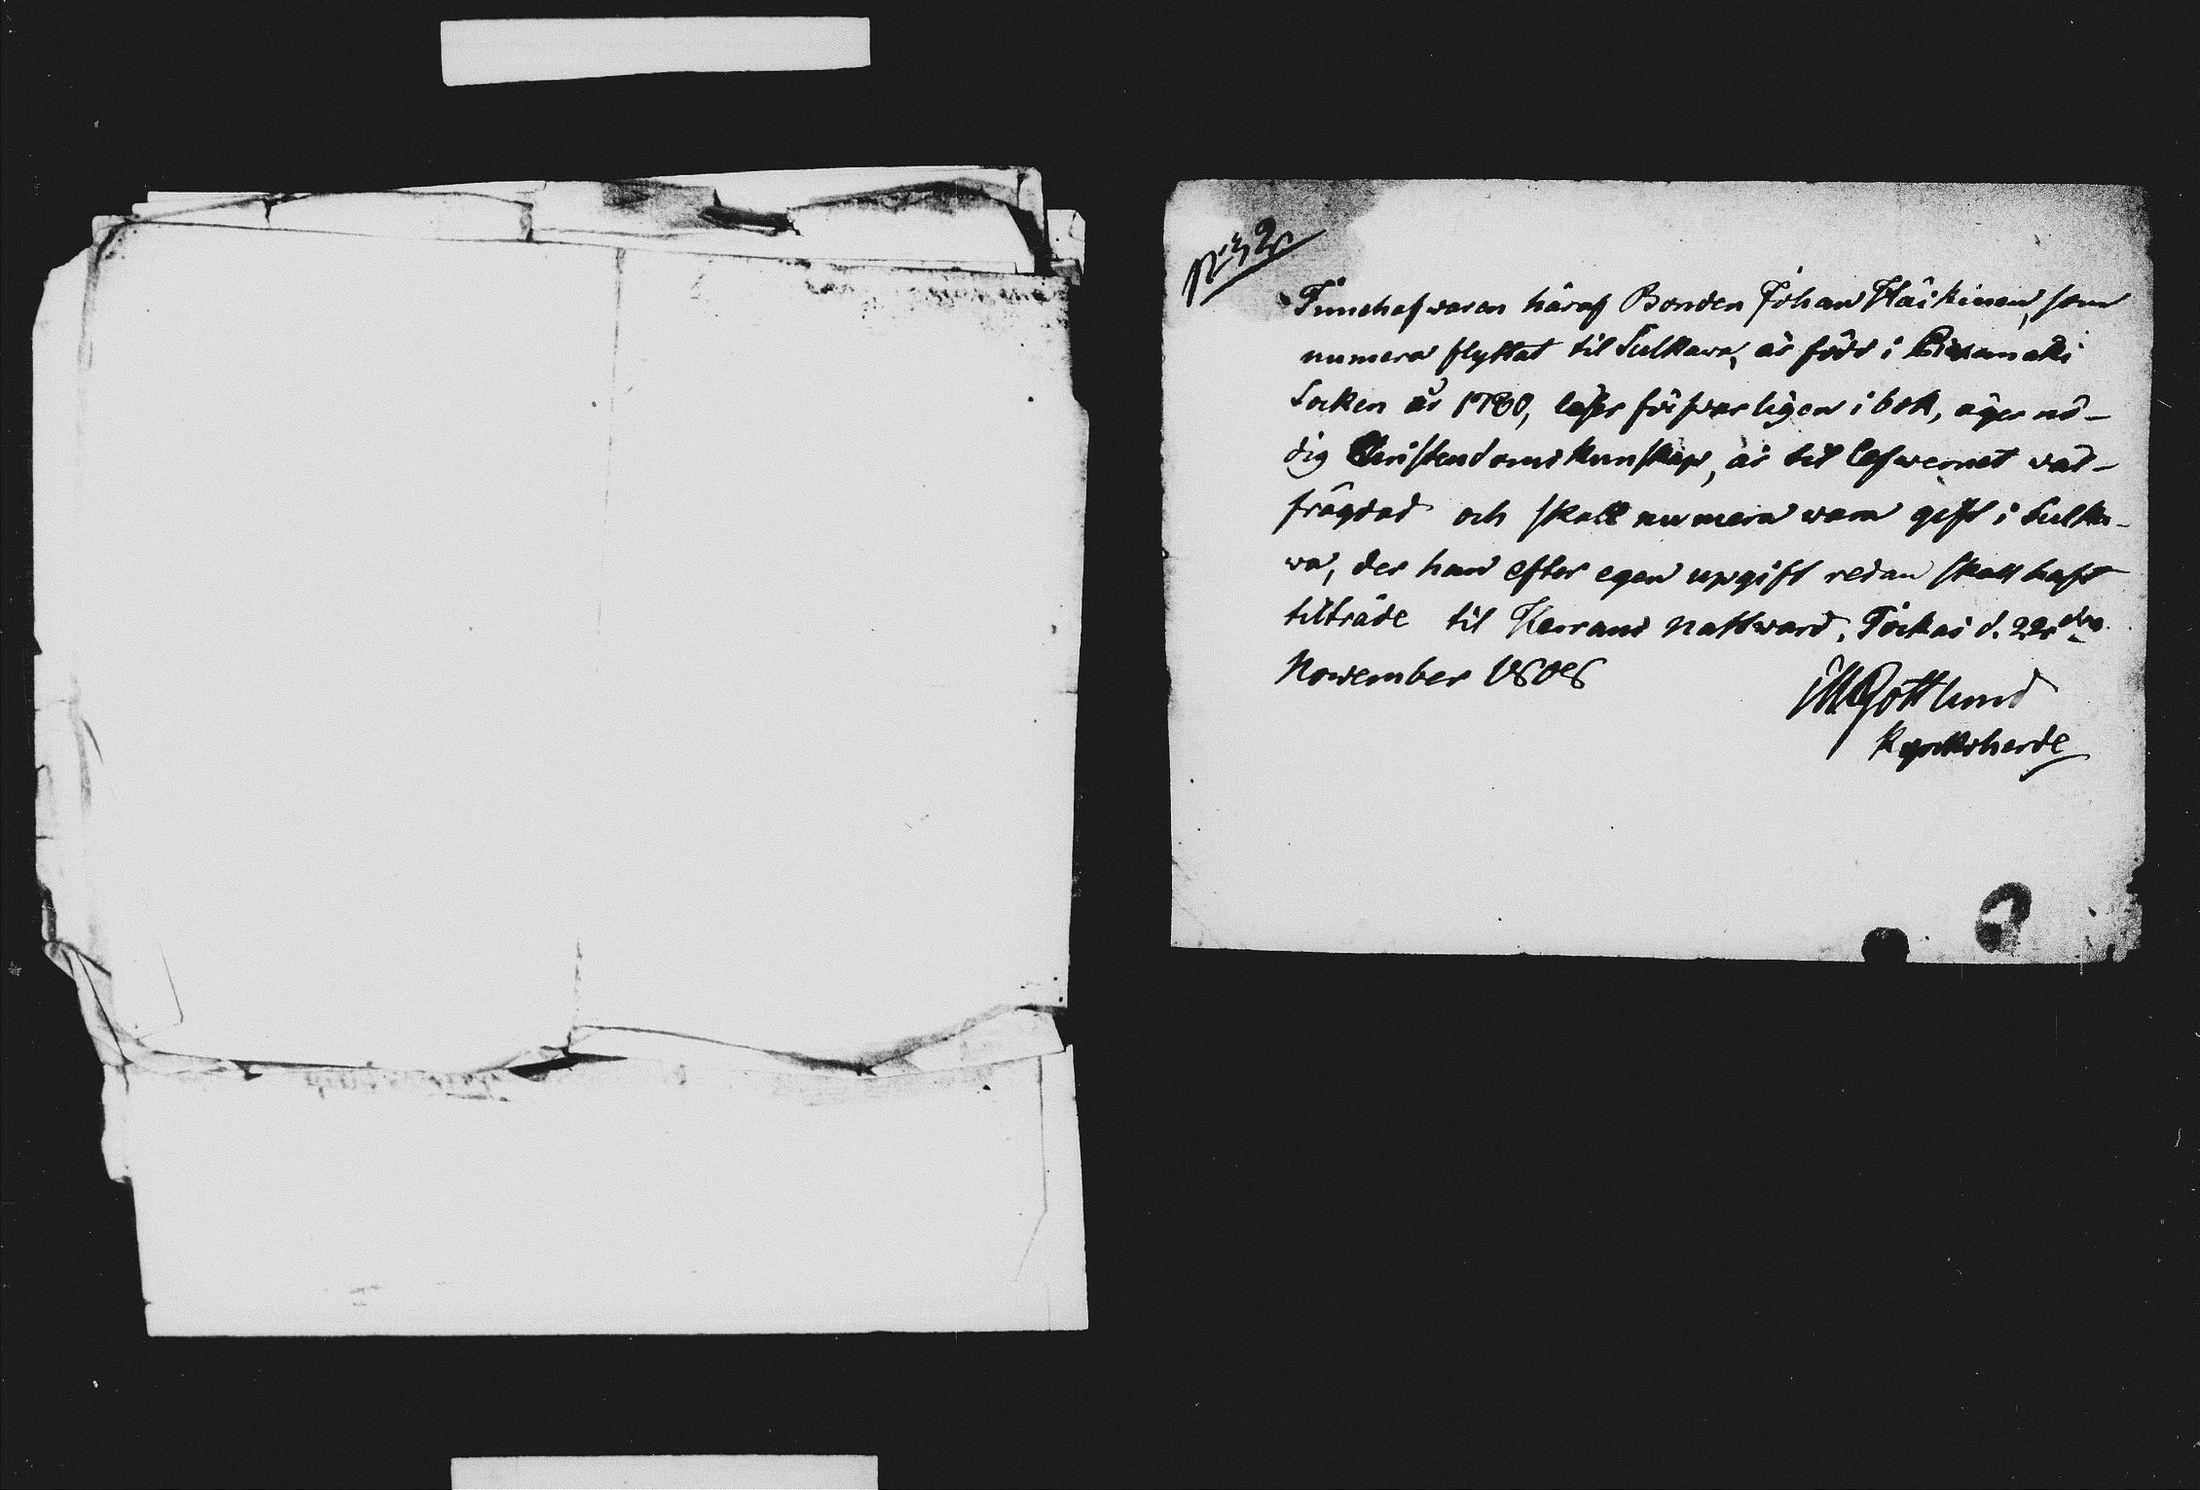 N:32
Innehafvaren häraf Bonden Johan Häikinen, som
numera flyttat til Sulkava, är född i
Socken år 1780, läser försvarligen i bok, äger nö-
dig Christendomskunskap, är til lefvernet väl-
frägdad och skall numera vara gift i Sulka-
va, der han efter egen upgift redan skall haft
tilträde til Herrans Nattvard. Jockas d. 22dra
November 1808
M Gottlund
Kyrkoherde